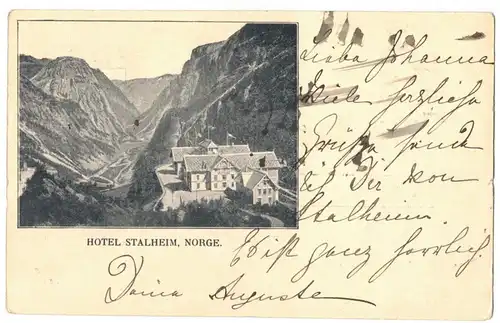 HOTEL STALHEIM, NORGE.
Liebe Johanna
Viele herzliche
Grüße sende
ich Dir von
Stalheim.
Es ist ganz herrlich.
Deine Auguste